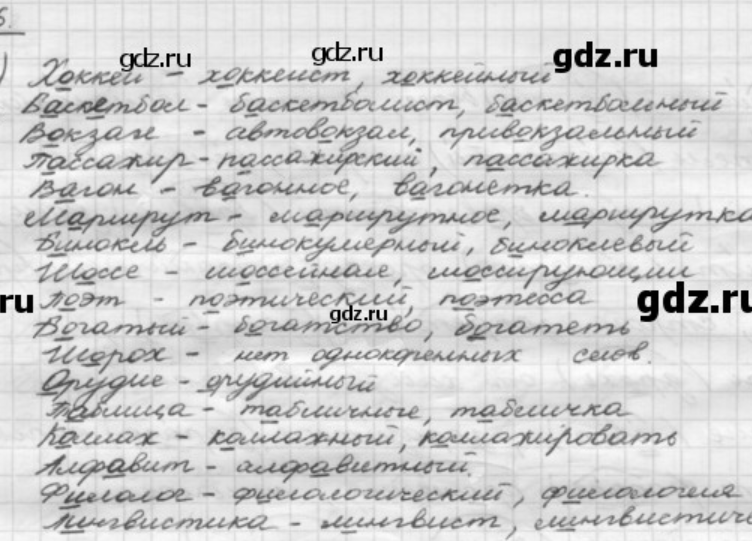 6.
gdz.ru gdz.ru gdz.ru
) Хоккей - хоккеист, хоккейный
Баскетбол - баскетболист, баскетбольный
Вокзале - автовокзал, привокзальный
Пассажир - пассажирский, пассажирка
Вагон - вагонное, вагонетка.
Маршрут - маршрутное, маршрутка
Бинокль - бинокулярный, биноклевый
Шоссе - шоссейные,
ru Поэт - поэтический, поэтесса gdz.ru
gdz.ru
Богатый - богатство, богатеть
Шорох - нет однокоренных слов.
Орудие - орудийный
Таблица - табличные, табличка
Коллаж - коллажный, коллажировать
Алфавит - алфавитный.
Филолог - филологический, филология
Лингвистика - лингвист, лингвистиче